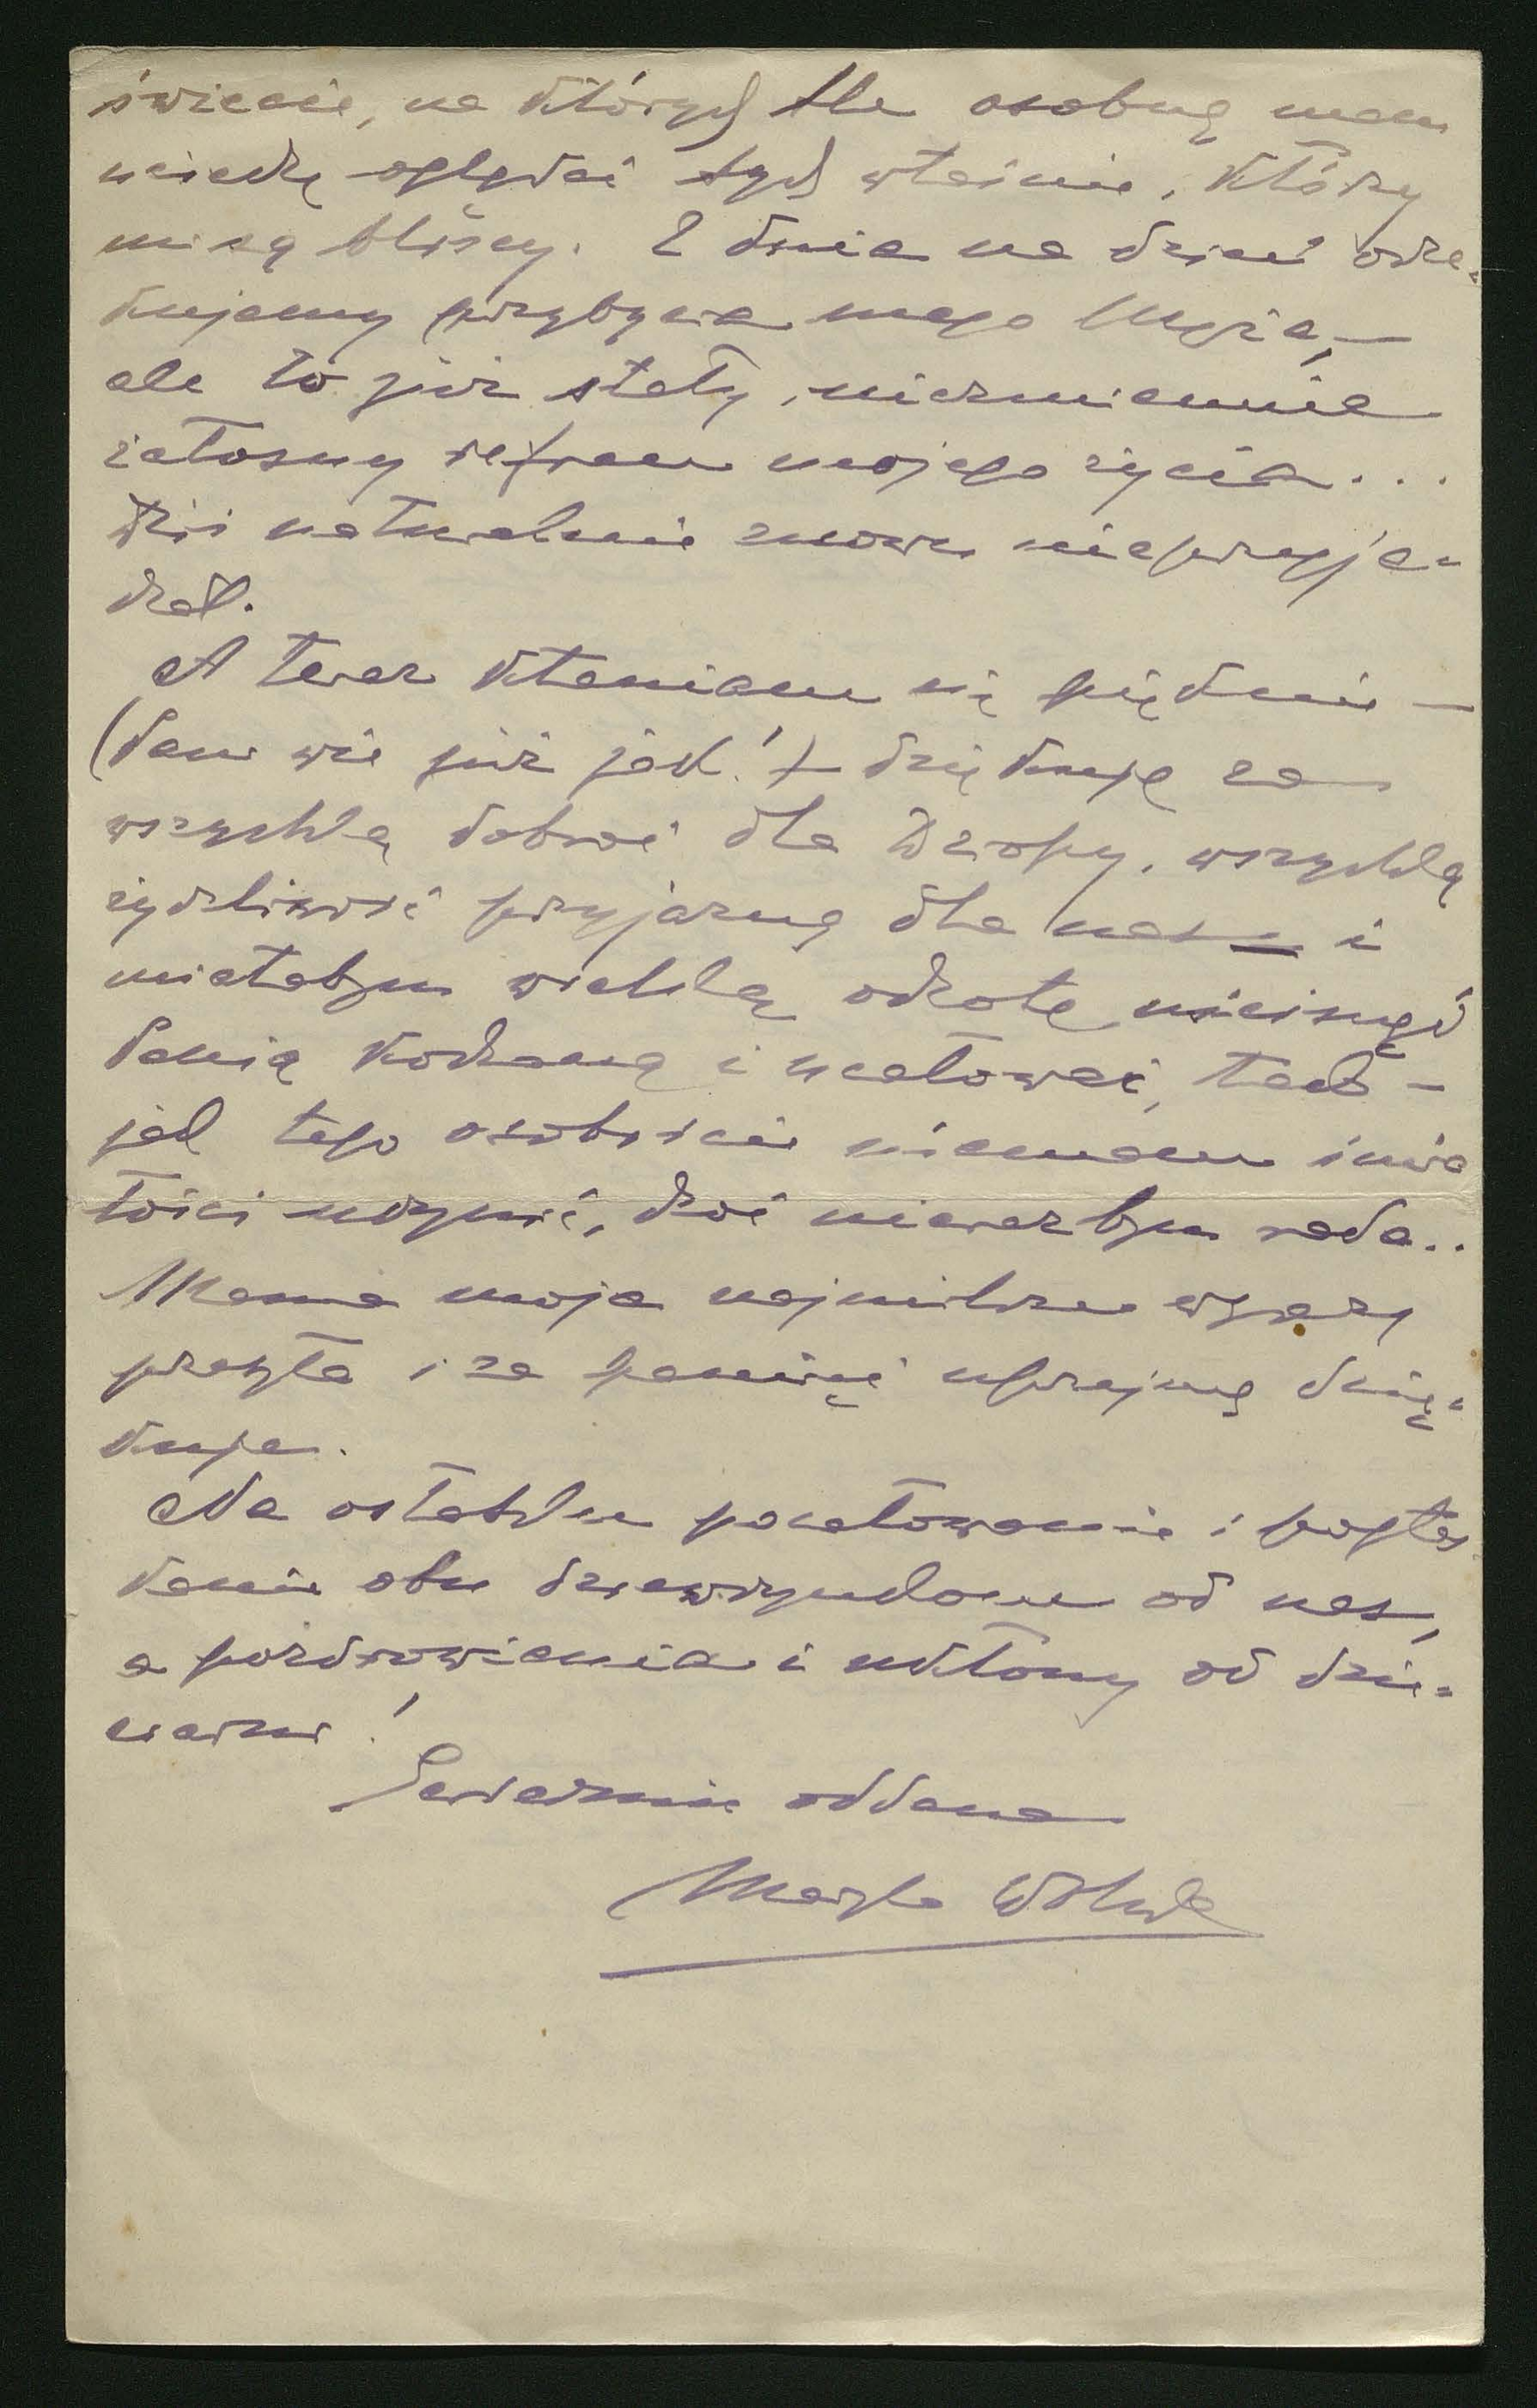 świecie, na których tle osobną mam
uciechę oglądać tych właśnie, którzy
mi są bliscy. Z dnia na dzień ocze-
kujemy przybycia mego Męża, —
ale to już stały, niezmiennie
żałosny refren mojego życia...
Dziś naturalnie znowu nieprzyje-
chał.
A teraz kłaniam się pięknie —
(Pan wie już jak!) — dziękuję za
wszystką dobroć dla, wszystką
życzliwość przyjazną dla nas i
miałabym wielką ochotę uścisnąć
Panią kochaną i ucałować, tak —
jak tego osobiście niemam śmia
łości uczynić, choć nieraz bym rada..
Mama moja najmilsze wyrazy
przesyła i za pamięć uprzejmą dzię-
kuje.
Na ostatku pocałowanie i pogłas
kanie obu dziewczynkom od nas,
a pozdrowienia i ukłony od dzie-
wczyn!
Serdecznie oddana
Maryla Wolska